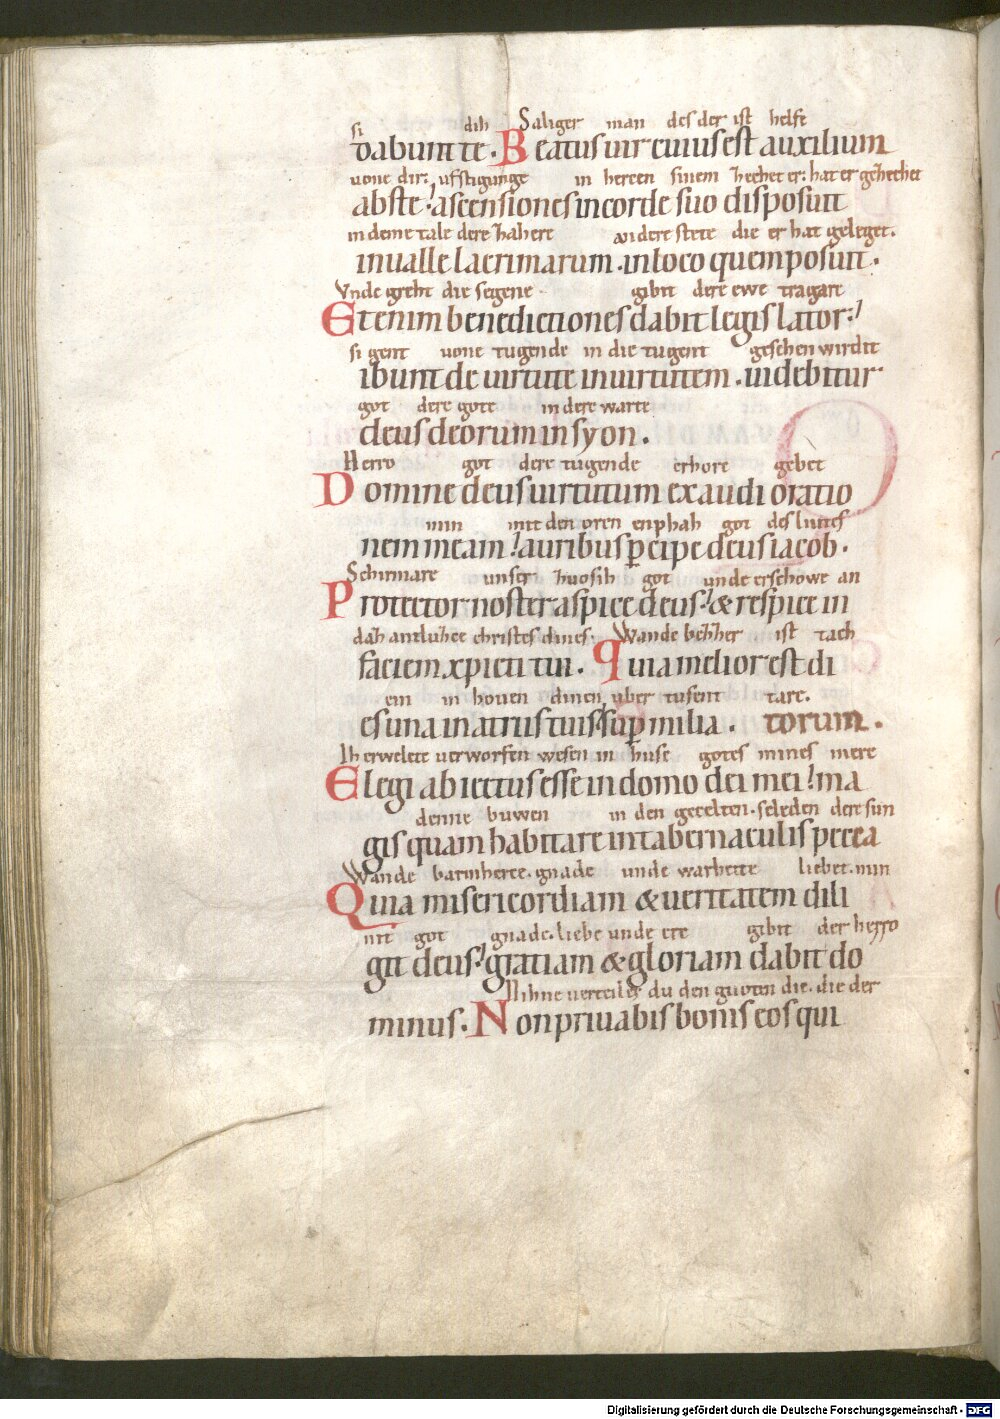 si dih Saliger man des der ist helfe
dabunt te. Beatus uir cuius est auxilium
uone dir: ufstigunge in hercen sinem hechet er: hat er gehechet
abs te: ascensiones in corde suo disposuit
in deme tale dere zahere an dere stete die er hat geleget.
inualle lacrimarum. in loco quem posuit.
Vnde gieht die segene gibit dere ewe tragare
Etenim benedictiones dabit legislator:
si gent uone tugende in die tugent gesehen wirdit
ibunt de uirtute in uirtutem. uidebitur
got dere gote in dere warte
deus deorum in syon.
Herro got dere tugende erhore gebet
Domine deus uirtutum exaudi oratio
min mit den oren enphah got des liutes
nem meam: auribus pcipe deus iacob.
Schirmare unser huosih got unde erschowe an
Protector noster aspice deus: & respice in
daz antluzze christes dines. Wande bezzer ist tach
faciem xpi&i tui. Quia melior est di
ein in houen dinen uber tusent tare.
es una in atriis tuis: sup milia. torum.
Ih erwelete uerworfen wesen in huse gotes mines mere
Elegi abiectus esse in domo dei mei: ma
denne buwen in den gecelten. seleden dere sun
gis quam habitare in tabernaculis pecca
Wande barmherce. gnade unde warheite liebet. min
Quia misericordiam & ueritatem dili
nit got gnade. liebe unde ere gibit der herro
git deus: gratiam & gloriam dabit do
Nihne uerteilet du den guoten die. die der
minus. Non priuabis bonis eos qui
Digitalisierung gefördert durch die Deutsche Forschungsgemeinschaft - DFG